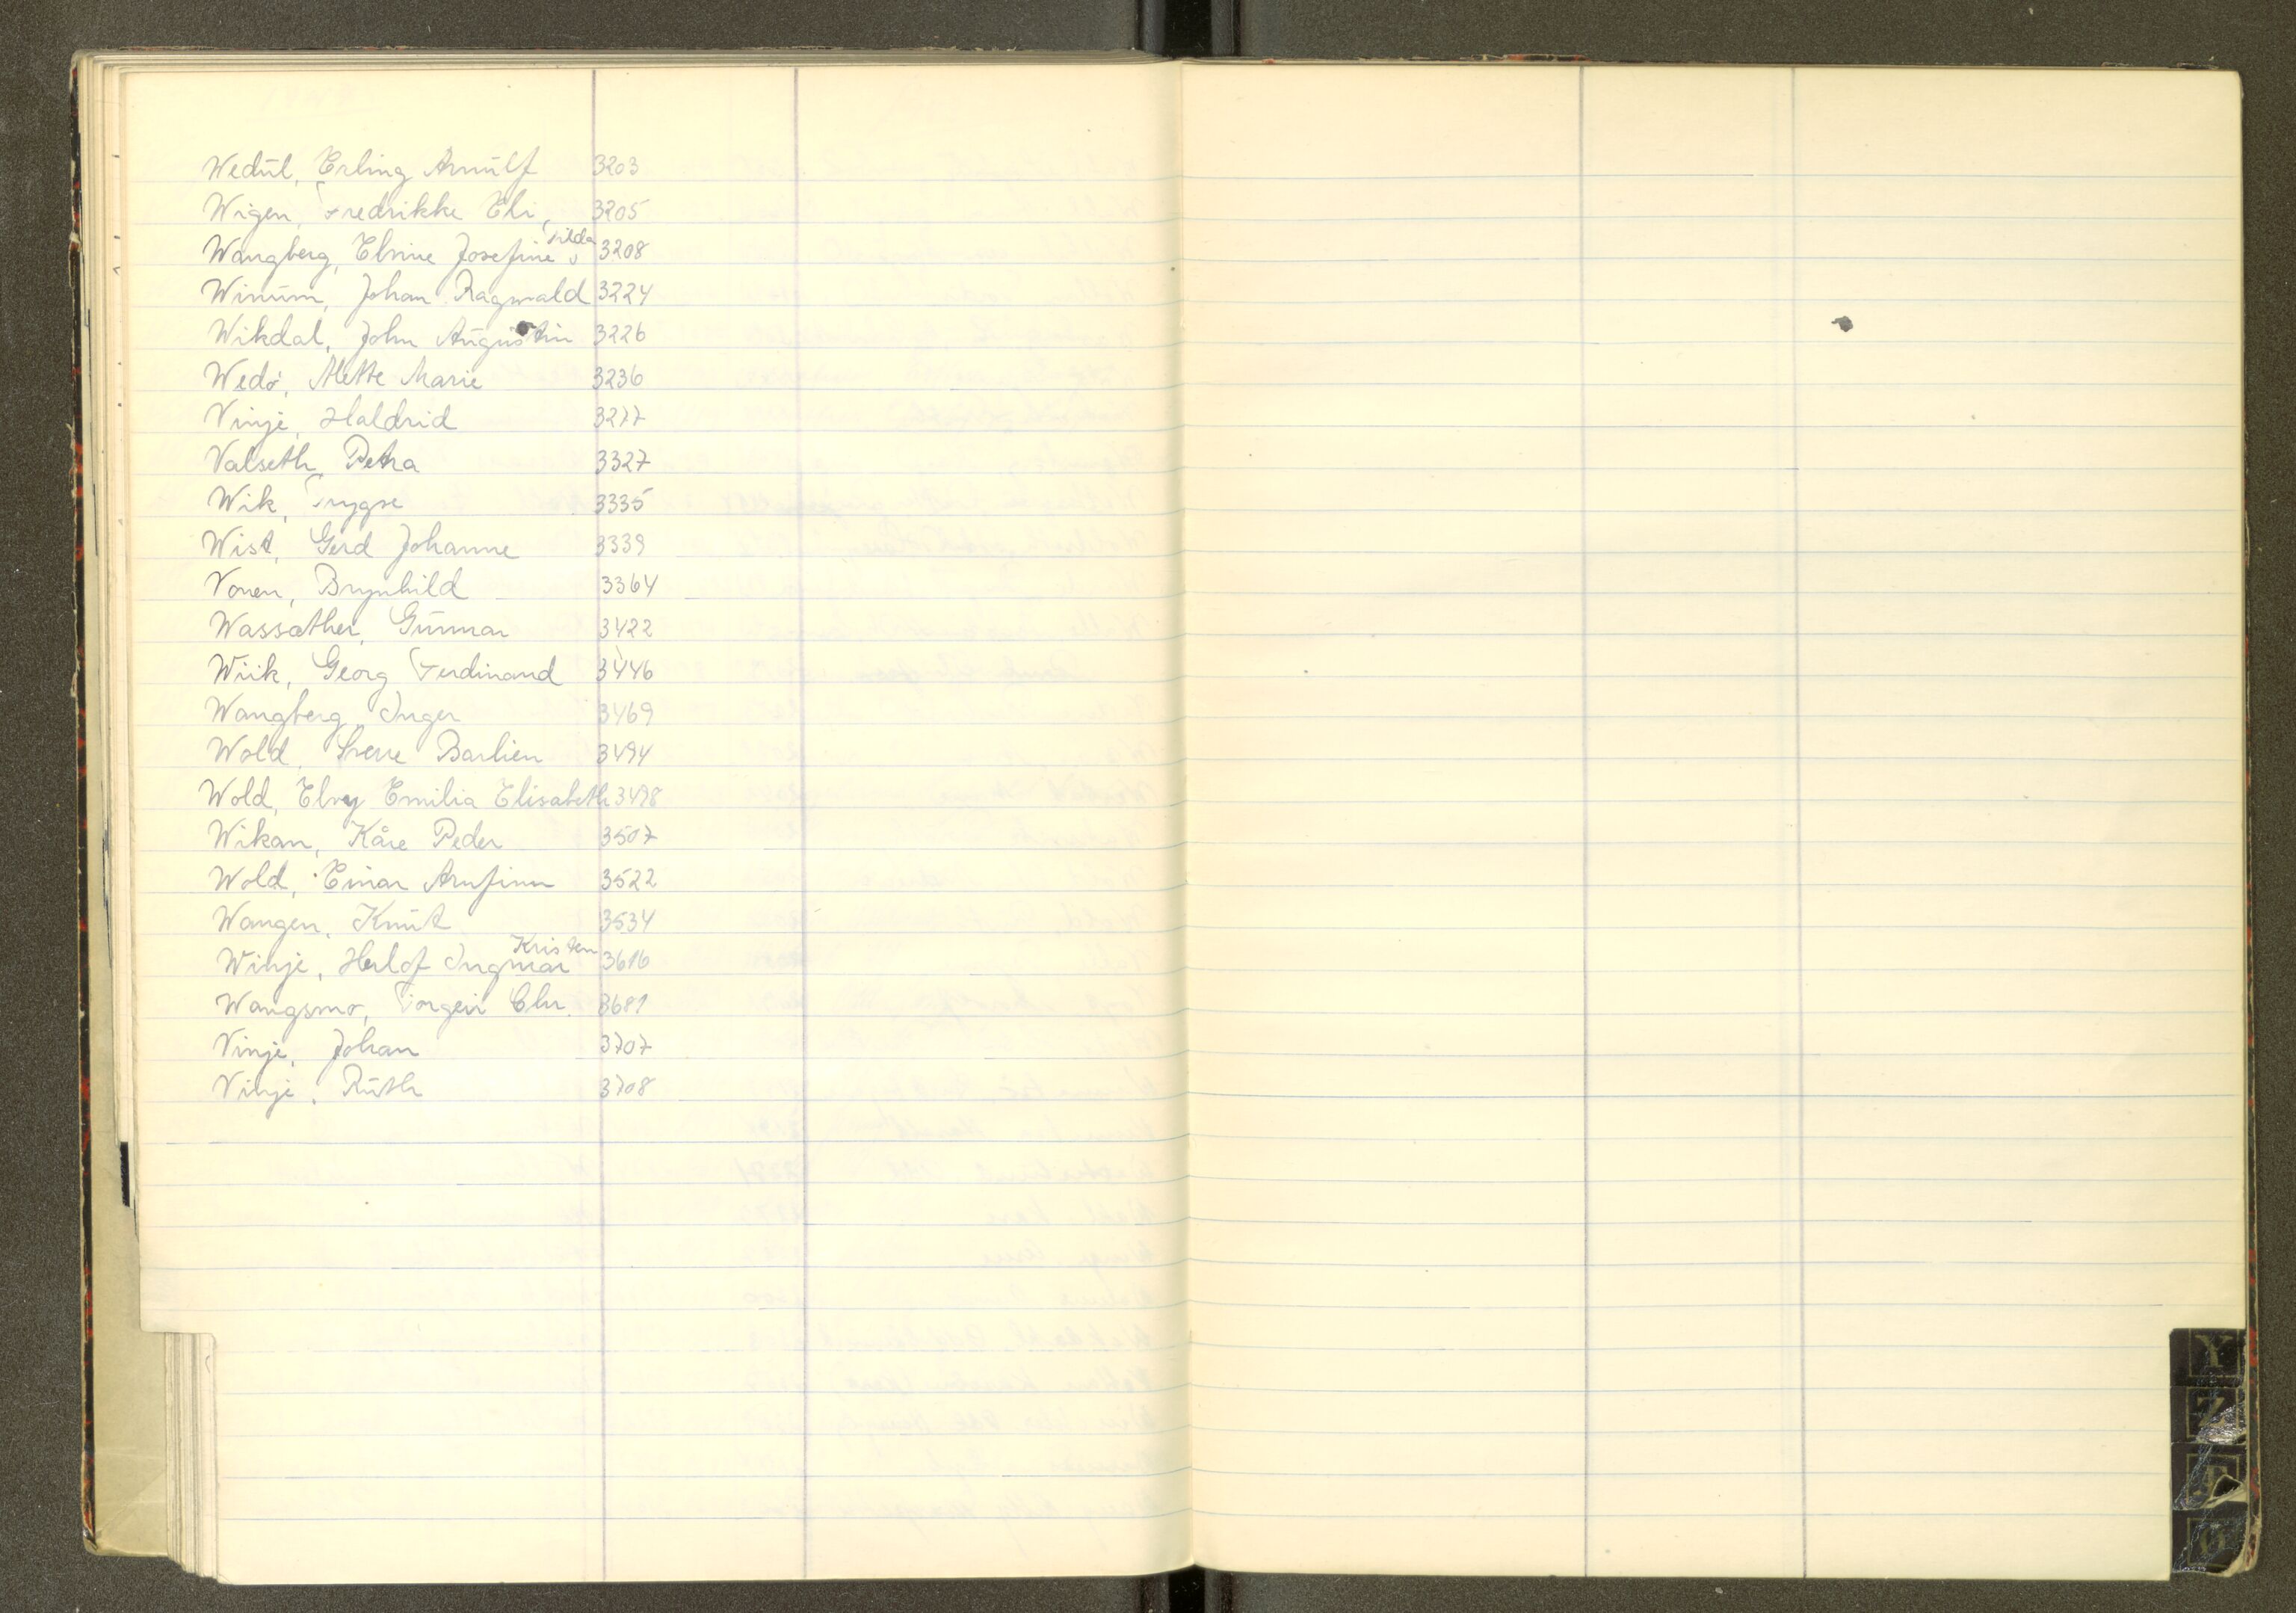 Wedul, Erling Arnulf 3203
Wigen, Fredrikke Eli, 3205
Tilda
Wangberg, Elvine Josefine 3208
Winum, Johan Ragnvald 3224
Wikdal, John Augustin 3226
Wedø, Alette Marie 3236
Vinje, Haldrid 3277
Valseth, Petra 3327
Wik, Trygve 3335
Wist, Gerd Johanne 3339
Vonen, Brynhild 3364
Wassæther, Gunnar 3422
Wiik, Georg Ferdinand 3446
Wangberg, Inger 3469
Wold, Sverre Barlien 3494
Wold, Elvy Emilia Elisabeth 3498
Wikan, Kåre Peder 3507
Wold, Einar Arnfinn 3522
Wangen, Knut 3534
Kristen
Winje, Herlof Ingmar 3616
Wangsmo, Torgeir Chr. 3681
Vinje, Johan 3707
Vinje, Ruth 3708
Y
Z
Æ
Ø